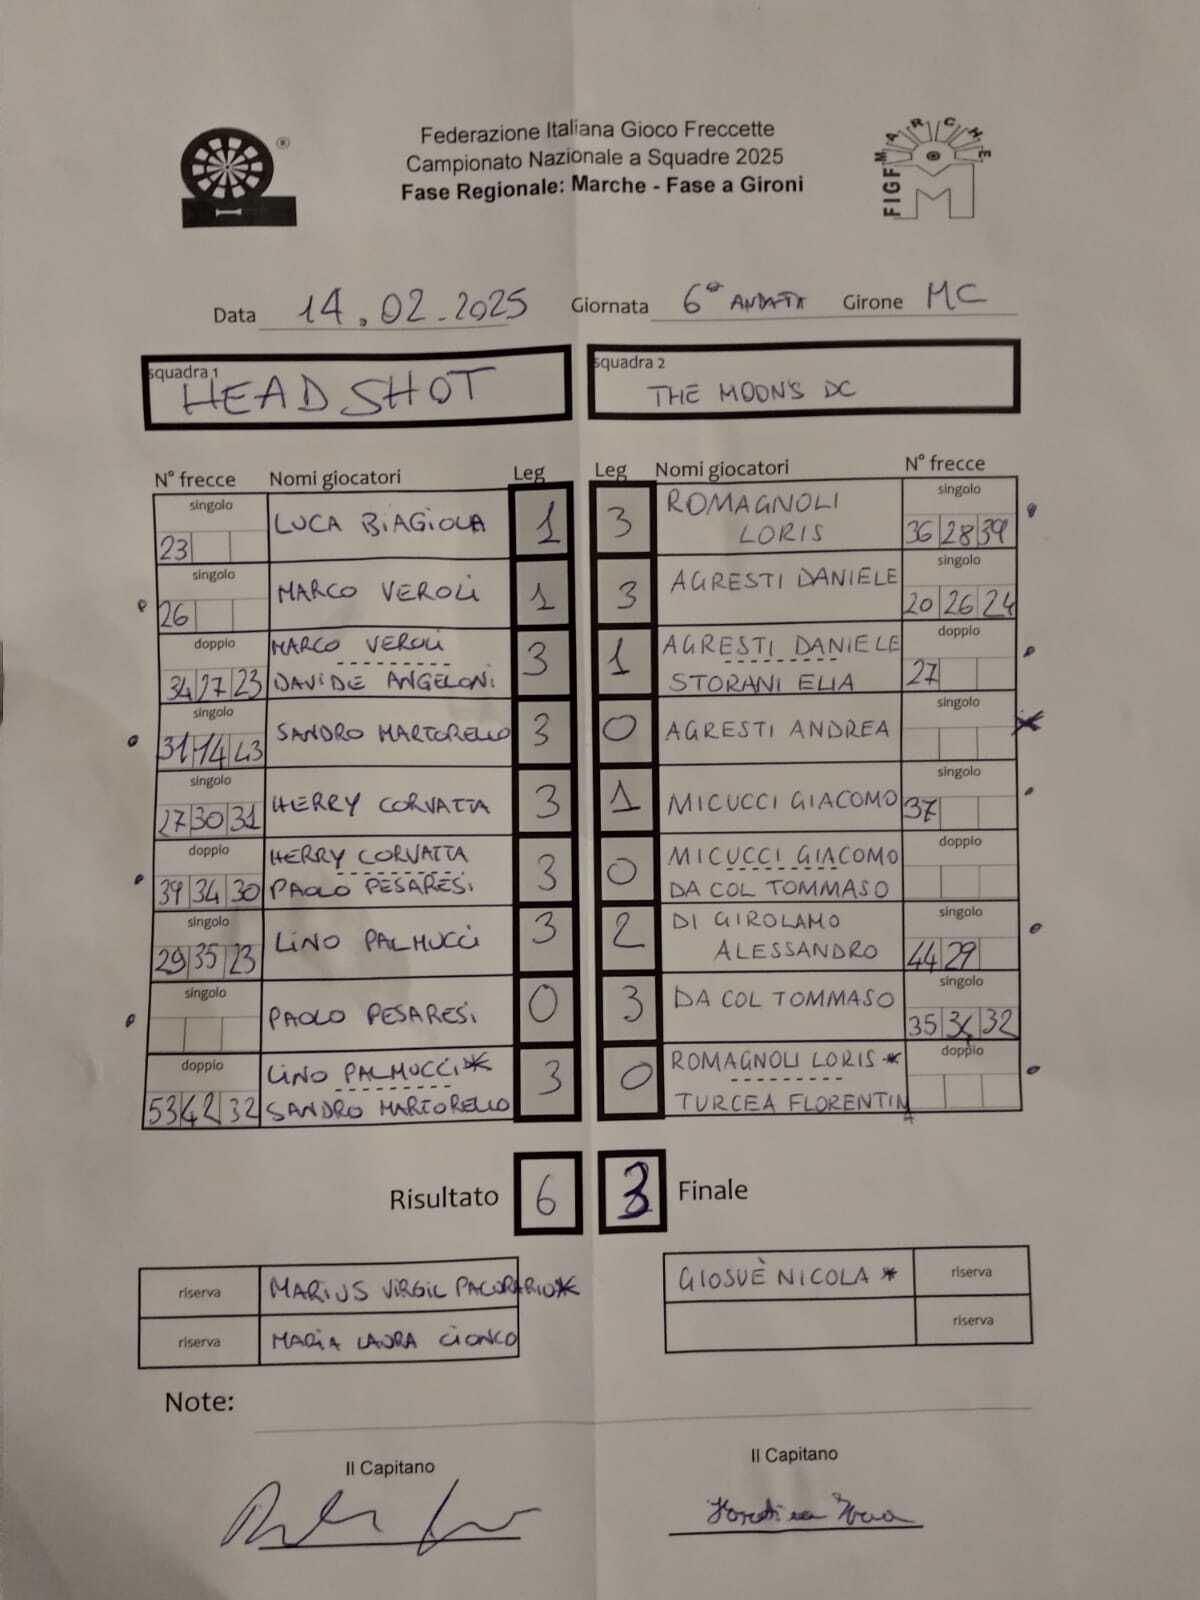 Federazione Italiana Gioco Freccette
Campionato Nazionale a Squadre 2025
Fase Regionale: Marche - Fase a Gironi
®
FIGF MARCHE
Data 14.02.2025 Giornata 6° ANDATA Girone MC
squadra 1 HEAD SHOT
squadra 2 THE MOON'S DC
N° frecce Nomi giocatori Leg Leg Nomi giocatori N° frecce
singolo 23 LUCA BIAGIOLA 1 3 ROMAGNOLI LORIS singolo 36 28 39
singolo 26 MARCO VEROLI 1 3 AGRESTI DANIELE singolo 20 26 24
doppio 34 27 23 MARCO VEROLI DAVIDE ANGELONI 3 1 AGRESTI DANIELE STORANI ELIA doppio 27
singolo 31 14 43 SANDRO MARTORELLO 3 0 AGRESTI ANDREA singolo
singolo 27 30 31 HERRY CORVATTA 3 1 MICUCCI GIACOMO singolo 37
doppio 39 34 30 HERRY CORVATTA PAOLO PESARESI 3 0 MICUCCI GIACOMO DA COL TOMMASO doppio
singolo 29 35 23 LINO PALMUCCI 3 2 DI GIROLAMO ALESSANDRO singolo 44 29
singolo PAOLO PESARESI 0 3 DA COL TOMMASO singolo 35 34 32
doppio 53 42 32 LINO PALMUCCI* SANDRO MARTORELLO 3 0 ROMAGNOLI LORIS * TURCEA FLORENTINA doppio
Risultato 6 3 Finale
riserva MARIUS VIRGIL PACURARIO* GIOSUÈ NICOLA * riserva
riserva MARIA LAURA CIONCO riserva
Note:
Il Capitano Il Capitano